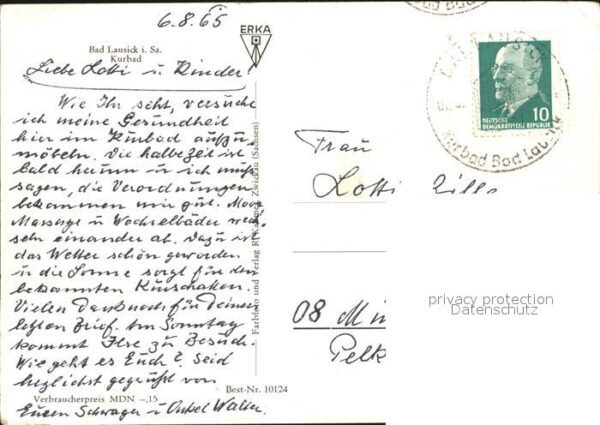 6.8.65
ERKA
Bad Lausick i. Sa.
Kurbad
Liebe Lotti u. Kinder!
Wie Ihr seht, versuche
ich meine Gesundheit
hier im Kurbad aufzu
möbeln. Die halbe Zeit ist
bald herum u. ich muß
sagen, die Verordnungen
bekommen mir gut. Moor
Massage u Wechselbäder wech
seln einander ab. Dazu ist
das Wetter schön geworden
u. die Sonne sorgt für den
bekannten Kurschatten.
Vielen Dank noch für Deinen
letzten Brief. Am Sonntag
kommt Ilse zu Besuch.
Wie geht es Euch? Seid
herzlichst gegrüßt von
Verbraucherpreis MDN –,15
Best-Nr. 10124
Eurem Schwager u Onkel Walter.
Farbfoto und Verlag Zwickau (Sachsen)
10
DEUTSCHE
DEMOKRATISCHE REPUBLIK
Kurbad Bad Lausick
Frau
Lotti
08 Mü
Pelk
privacy protection
Datenschutz